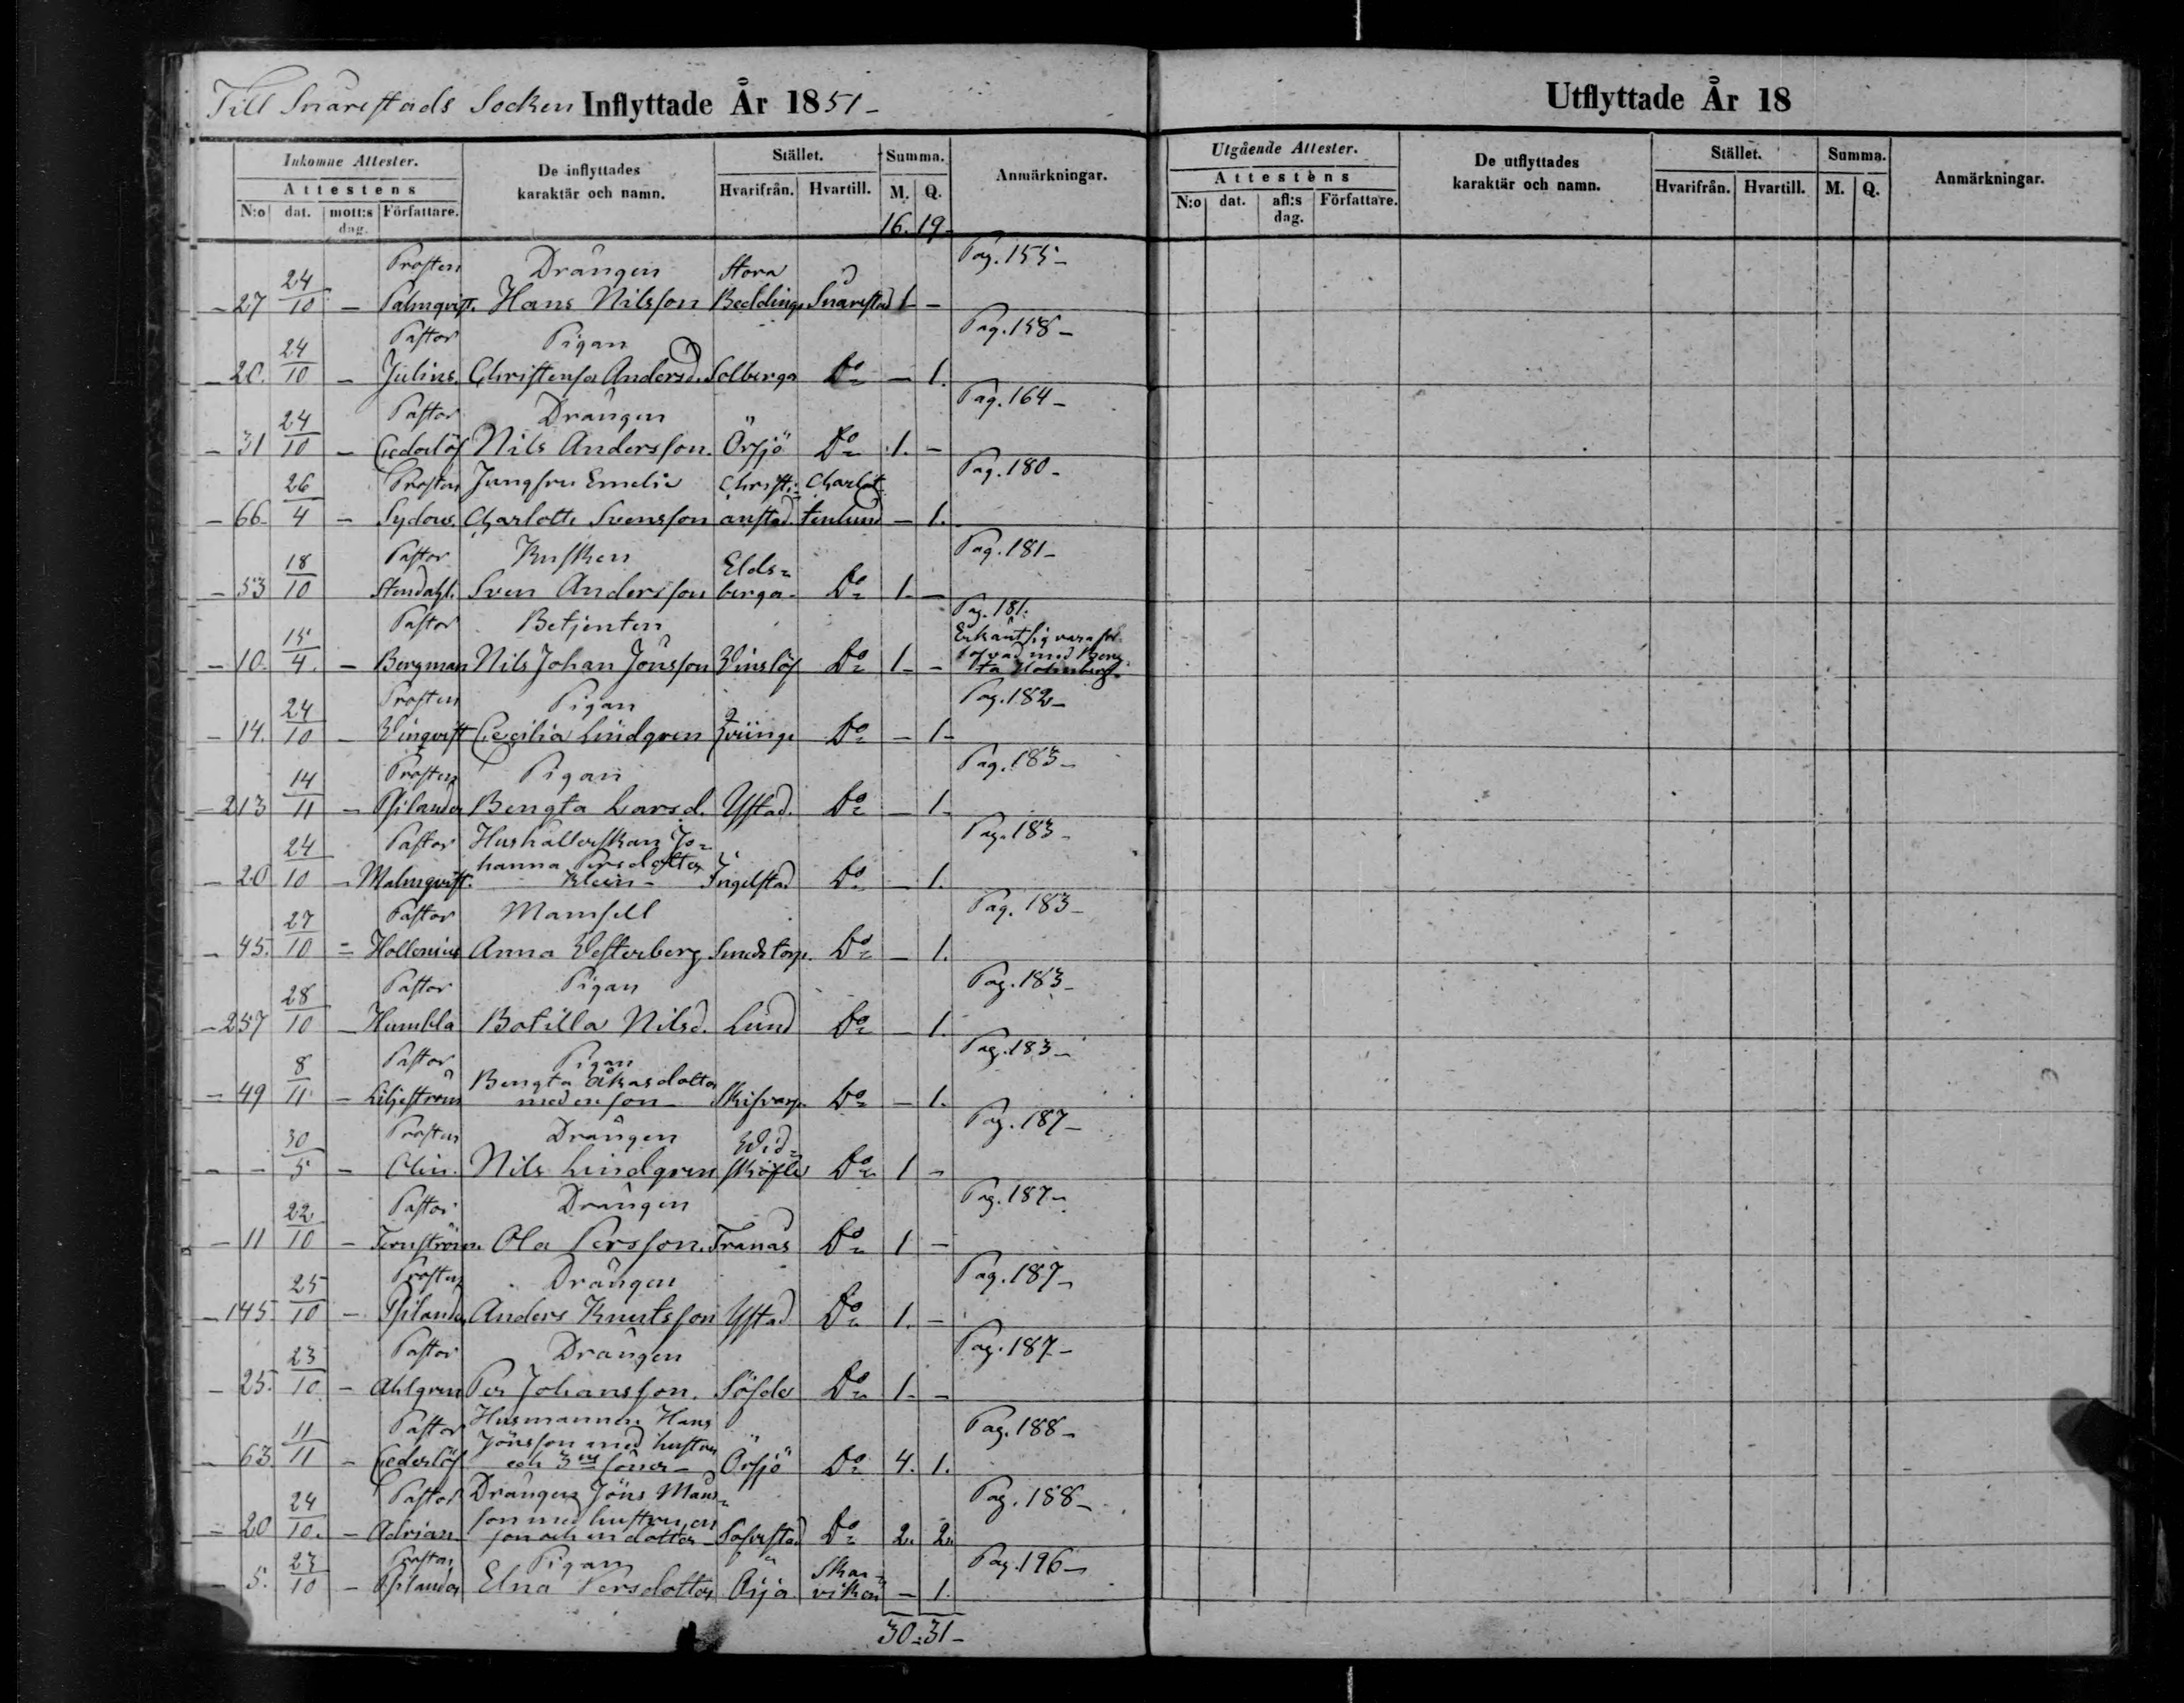 Till Snårestads Socken Inflyttade År 1851 -
Inkomne Attester.
De inflyttades karaktär och namn.
Stället.
Summa.
Anmärkningar.
Attestens
Hvarifrån. Hvartill. M. Q.
N:o dat. mott:s dag. Författare.
16. 19-
Prosten Drängen Stora Pag. 155-
- 27 24/10 - Palmqvist. Hans Nilsson Beddinge Snårestad 1 -
Pastor Pigan Pag. 158-
- 20. 24/10 - Julius. Christensa Andersd. Solberga Do - 1.
Pastor Drängen Pag. 164-
- 31 24/10 - Cederlöf Nils Andersson. Örsjö Do 1. -
Prosten Jungfru Emelie Christi= Charlot Pag. 180-
- 66. 26/4 - Sydow. Charlotte Svensson anstad. tenlund - 1.
Pastor Kusken Elds= Pag. 181-
- 53 18/10 Stendahl. Sven Andersson berga. Do 1. -
Pastor Betjenten Pag. 181.
Erkänt sig vara för
- 10. 15/4. - Bergman Nils Johan Jönsson Vinslöf Do 1- - lofvad med Beng
ta Holmberg.
Prosten Pigan Pag. 182-
- 14. 24/10 - Vinqvist Cecilia Lindgren Do - 1-
Prosten Pigan Pag. 183-
- 213 14/11 - Psilander Bengta Larsd. Ystad. Do - 1-
Pastor Hushållerskan Jo= Pag. 183-
hanna Persdotter
- 20 24/10 - Malmqvist. Klein- Ingelstad Do - 1.
Pastor Mamsell Pag. 183-
- 45. 27/10 = Hollenius Anna Vesterberg Smedstorp. Do - 1.
Pastor Pigan Pag. 183-
- 257 28/10 - Humbla Botilla Nilsd. Lund Do - 1.
Pastor Pigan Pag. 183-
Bengta Åkasdotter
- 49 8/11 - Liljeström med en son- Skifvarp. Do - 1.
Prosten Drängen Wid= Pag. 187-
- - 30/5 - Olin. Nils Lindgren sköfle Do 1 -
Pastor Drängen Pag. 187-
- 11 22/10 - Ternström. Ola Persson. Tranås Do 1 -
Prosten Drängen Pag. 187-
- 145. 25/10 - Psilander Anders Knutsson Ystad Do 1. -
Pastor Drängen Pag. 187-
- 25. 23/10 - Ahlgren Per Johansson. Söfde Do 1. -
Husmannen Hans Pag. 188-
Pastor Jönsson med hustru
- 63. 11/11 - Cederlöf och 3ne söner- Örsjö Do 4. 1.
Pastor Drängen Jöns Måns= Pag. 188-
son med hustru, en
- 20 24/10. - Adrian son och en dotter- Do 2. 2.
Prosten Pigan Skar= Pag. 196-
- 5. 27/10 - Psilander Elna Persdotter viken - 1.
30. 31-
Utflyttade År 18
Utgående Attester.
De utflyttades karaktär och namn.
Stället.
Summa.
Anmärkningar.
Attestens
Hvarifrån. Hvartill. M. Q.
N:o dat. afl:s dag. Författare.